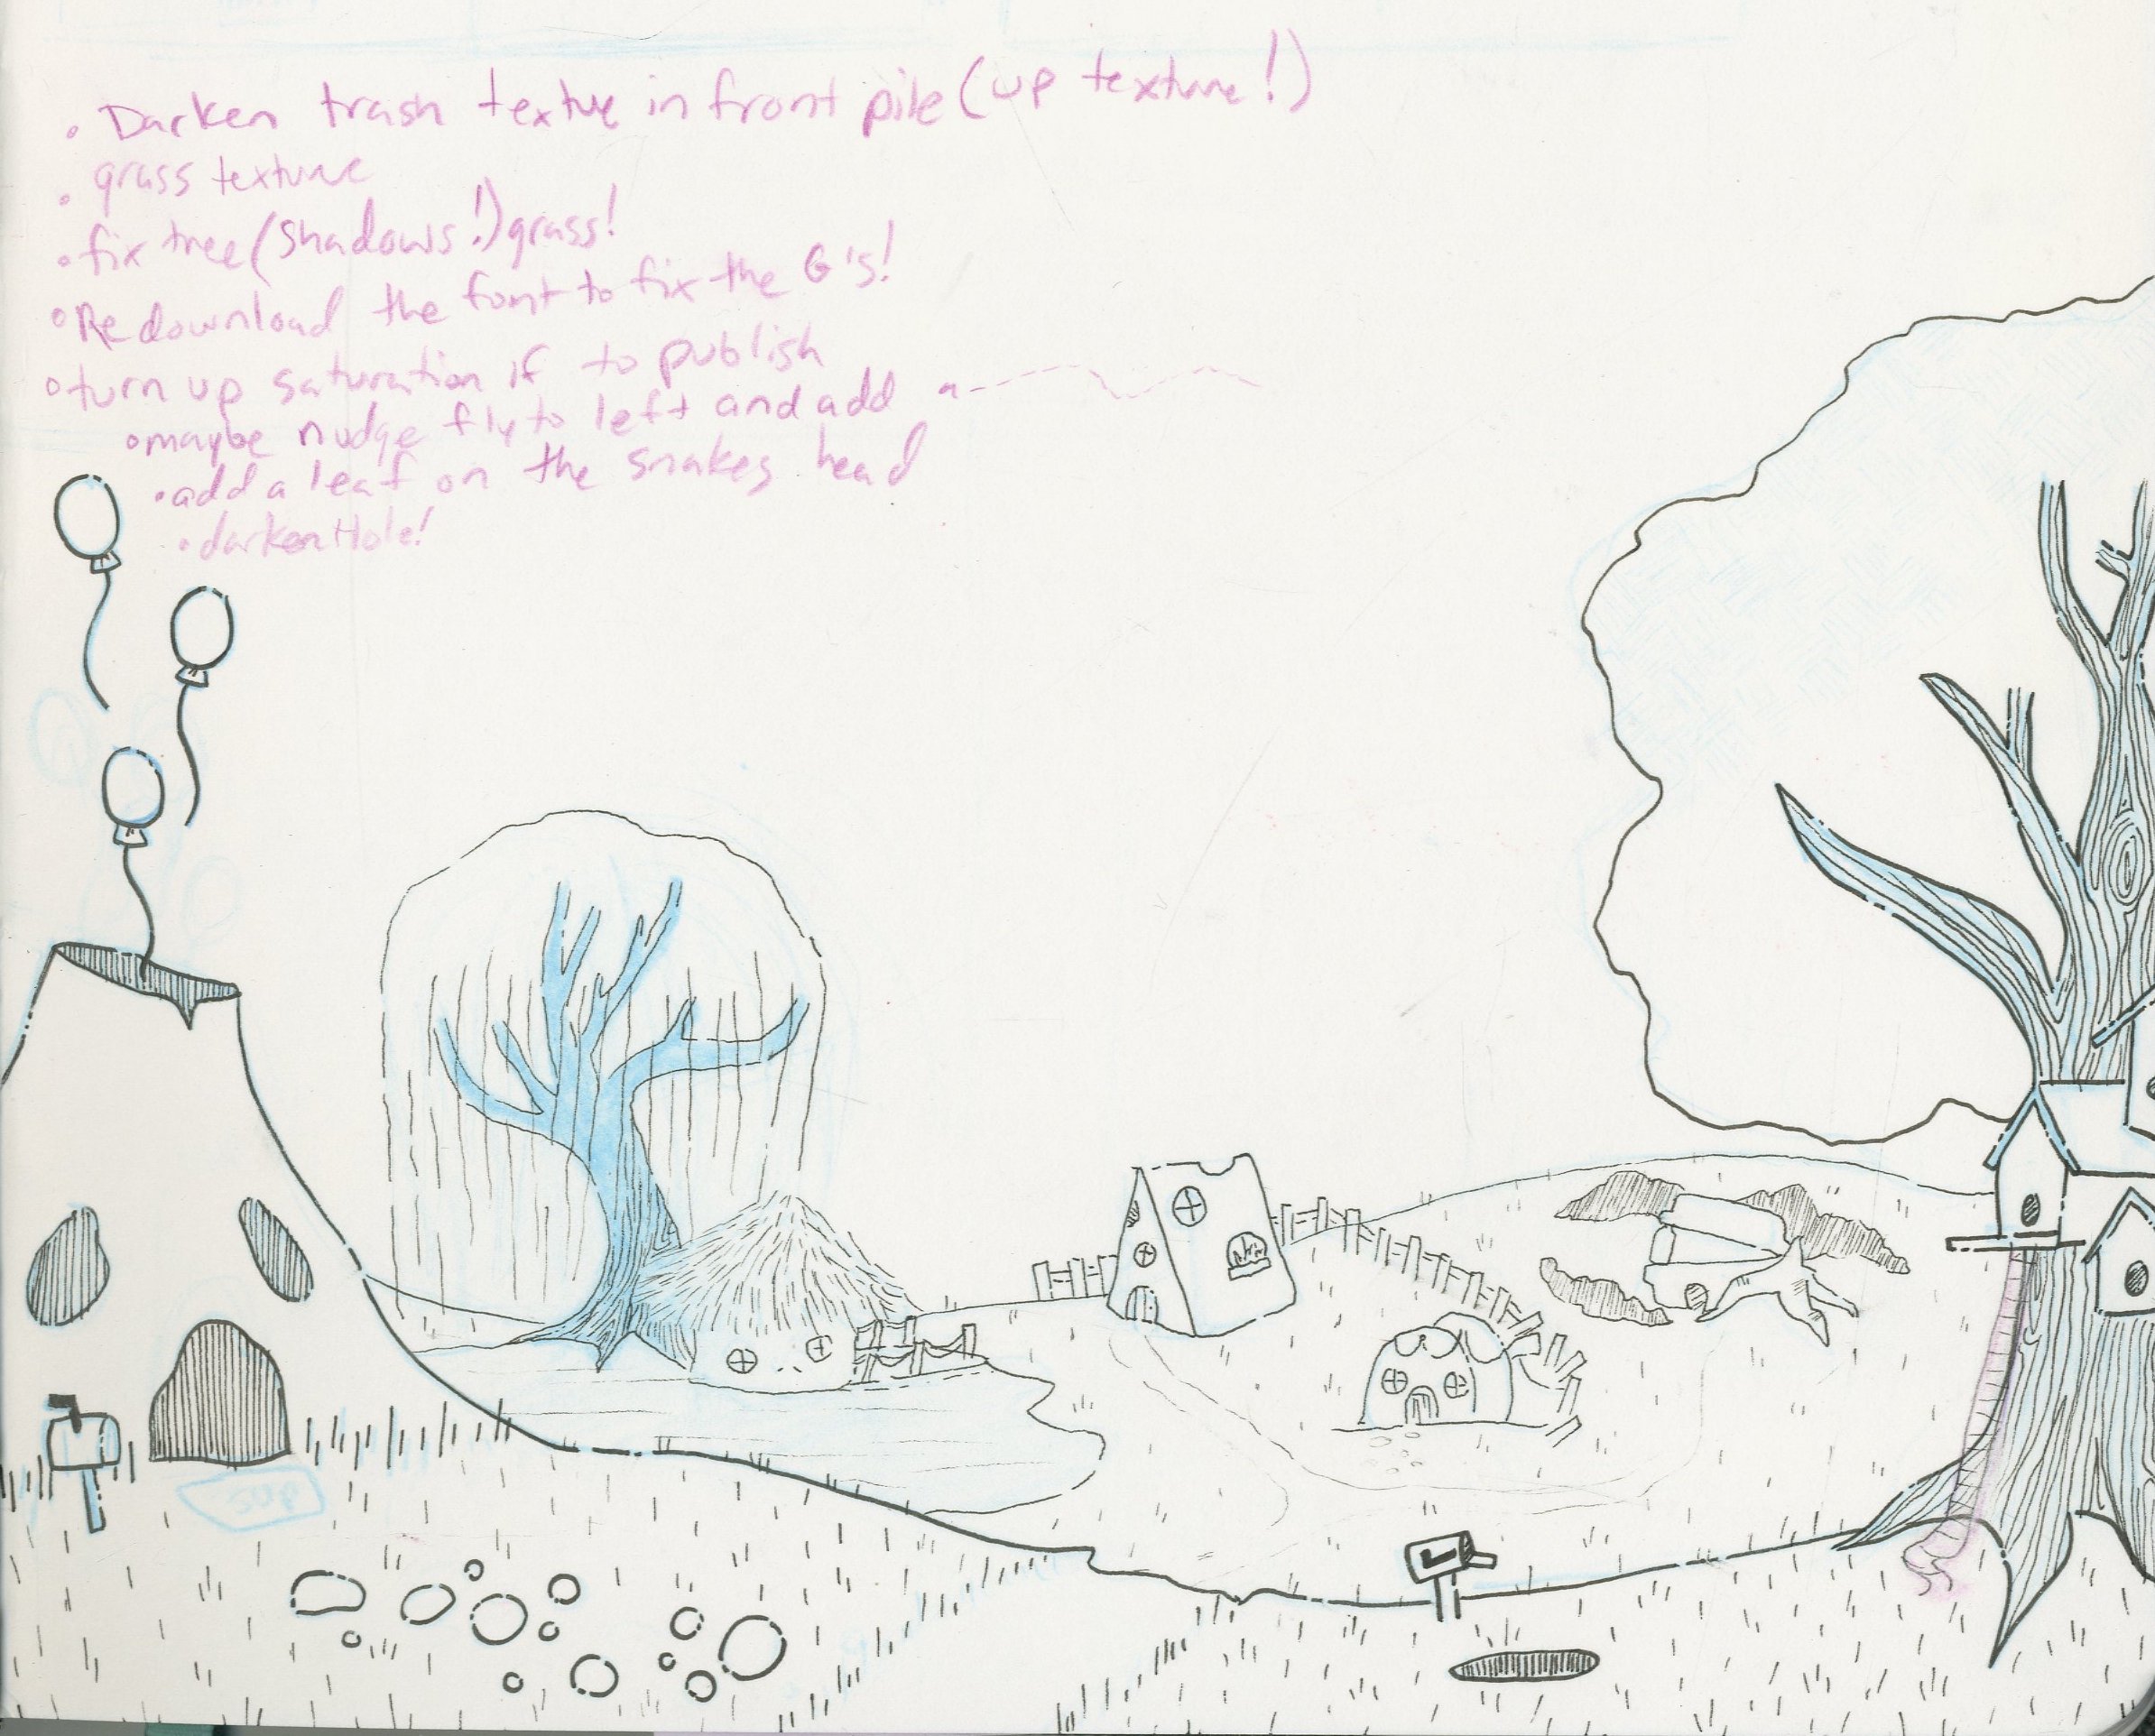 • Darken trash textue in front pile (up texture!)
• grass texture
• fix tree (shadows!) grass!
• Redownload the font to fix the G's!
• turn up saturation if to publish
• maybe nudge fly to left and add
• add a leaf on the snakes head
• darken Hole!